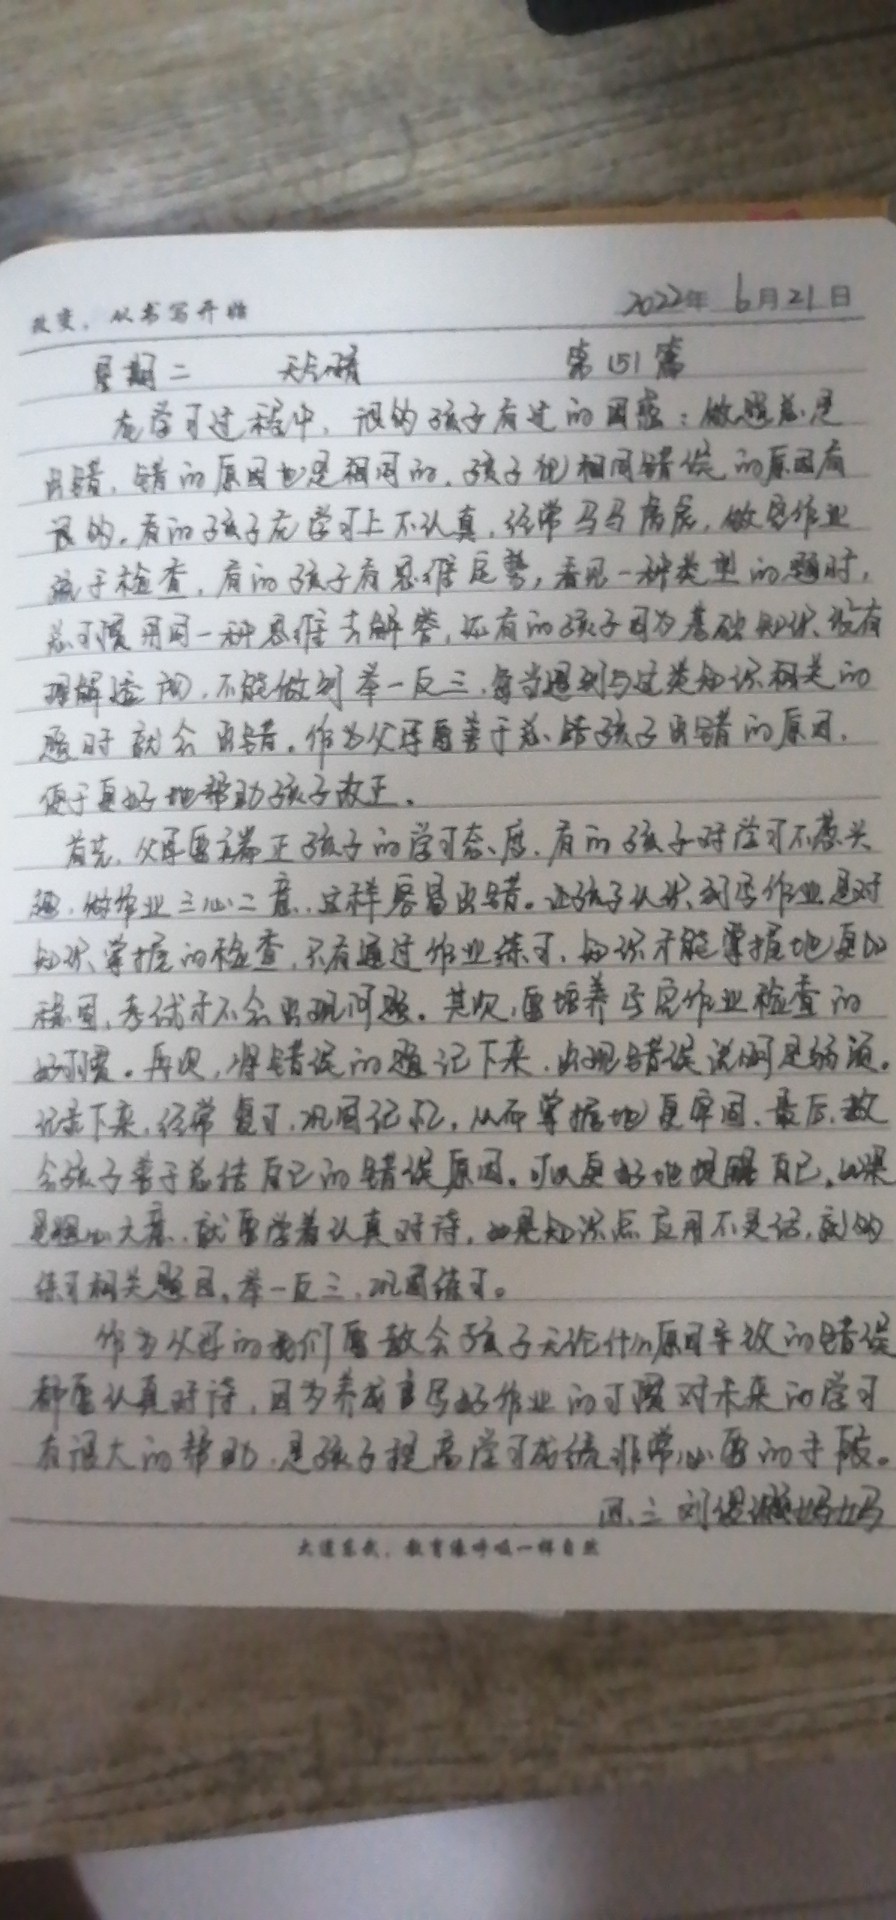 改变，从书写开始
2022年 6月21日
星期二 天气晴 第151篇
在学习过程中，很多孩子有过的困惑：做题总是
出错，错的原因也是相同的。孩子犯相同错误的原因有
很多，有的孩子在学习上不认真，经常马马虎虎，做完作业
疏于检查，有的孩子有思维定势，看见一种类型的题时，
总习惯用同一种思维去解答，还有的孩子因为基础知识没有
理解透彻，不能做到举一反三，每当遇到与这类知识相关的
题时就会出错。作为父母要善于总结孩子出错的原因，
便于更好地帮助孩子改正。
首先，父母要端正孩子的学习态度，有的孩子对学习不感兴
趣，做作业三心二意，这样容易出错。让孩子认识到写作业是对
知识掌握的检查，只有通过作业练习，知识才能掌握地更加
稳固，考试才不会出现问题。其次，要培养写完作业检查的
好习惯。再次，将错误的题记下来，出现错误说明是弱项。
记录下来，经常复习，巩固记忆，从而掌握地更牢固。最后，教
会孩子善于总结自己的错误原因，可以更好地提醒自己，如果
是粗心大意，就要学着认真对待，如是知识点应用不灵活，就多
练习相关题目，举一反三，巩固练习。
作为父母的我们要教会孩子无论什么原因导致的错误
都要认真对待，因为养成书写好作业的习惯对未来的学习
有很大的帮助，是孩子提高学习成绩非常必要的手段。
四、三 刘妈妈
大道至我，教育像呼吸一样自然